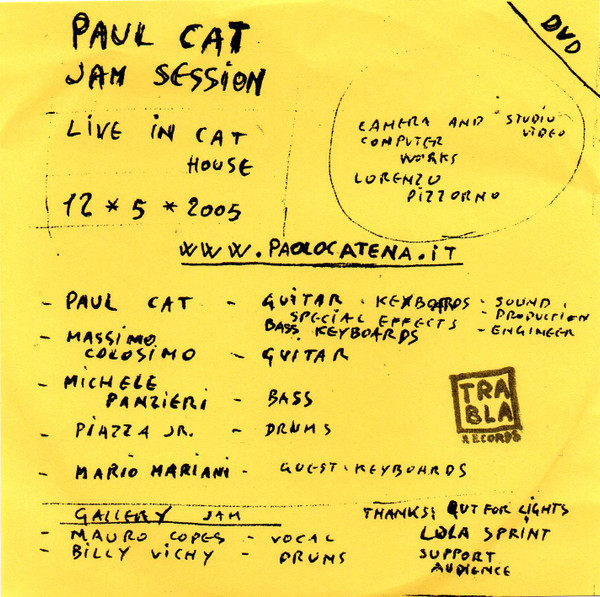 PAUL CAT
JAM SESSION
LIVE IN CAT
HOUSE
12 * 5 * 2005
DVD
CAMERA AND STUDIO
VIDEO
COMPUTER
WORKS
LORENZO
PIZZORNO
WWW.PAOLOCATENA.IT
- PAUL CAT - GUITAR. KEYBOARDS - SOUND.
SPECIAL EFFECTS - PRODUCTION
BASS. KEYBOARDS - ENGINEER
- MASSIMO
COLOSIMO - GUITAR
- MICHELE
PANZIERI - BASS
- PIAZZA JR. - DRUMS
- MARIO MARIANI - GUEST. KEYBOARDS
TRA
BLA
RECORDS
GALLERY JAM
- MAURO COPES - VOCAL
- BILLY VICHY - DRUMS
THANKS: QUT FOR LIGHTS
LOLA SPRINT
SUPPORT
AUDIENCE